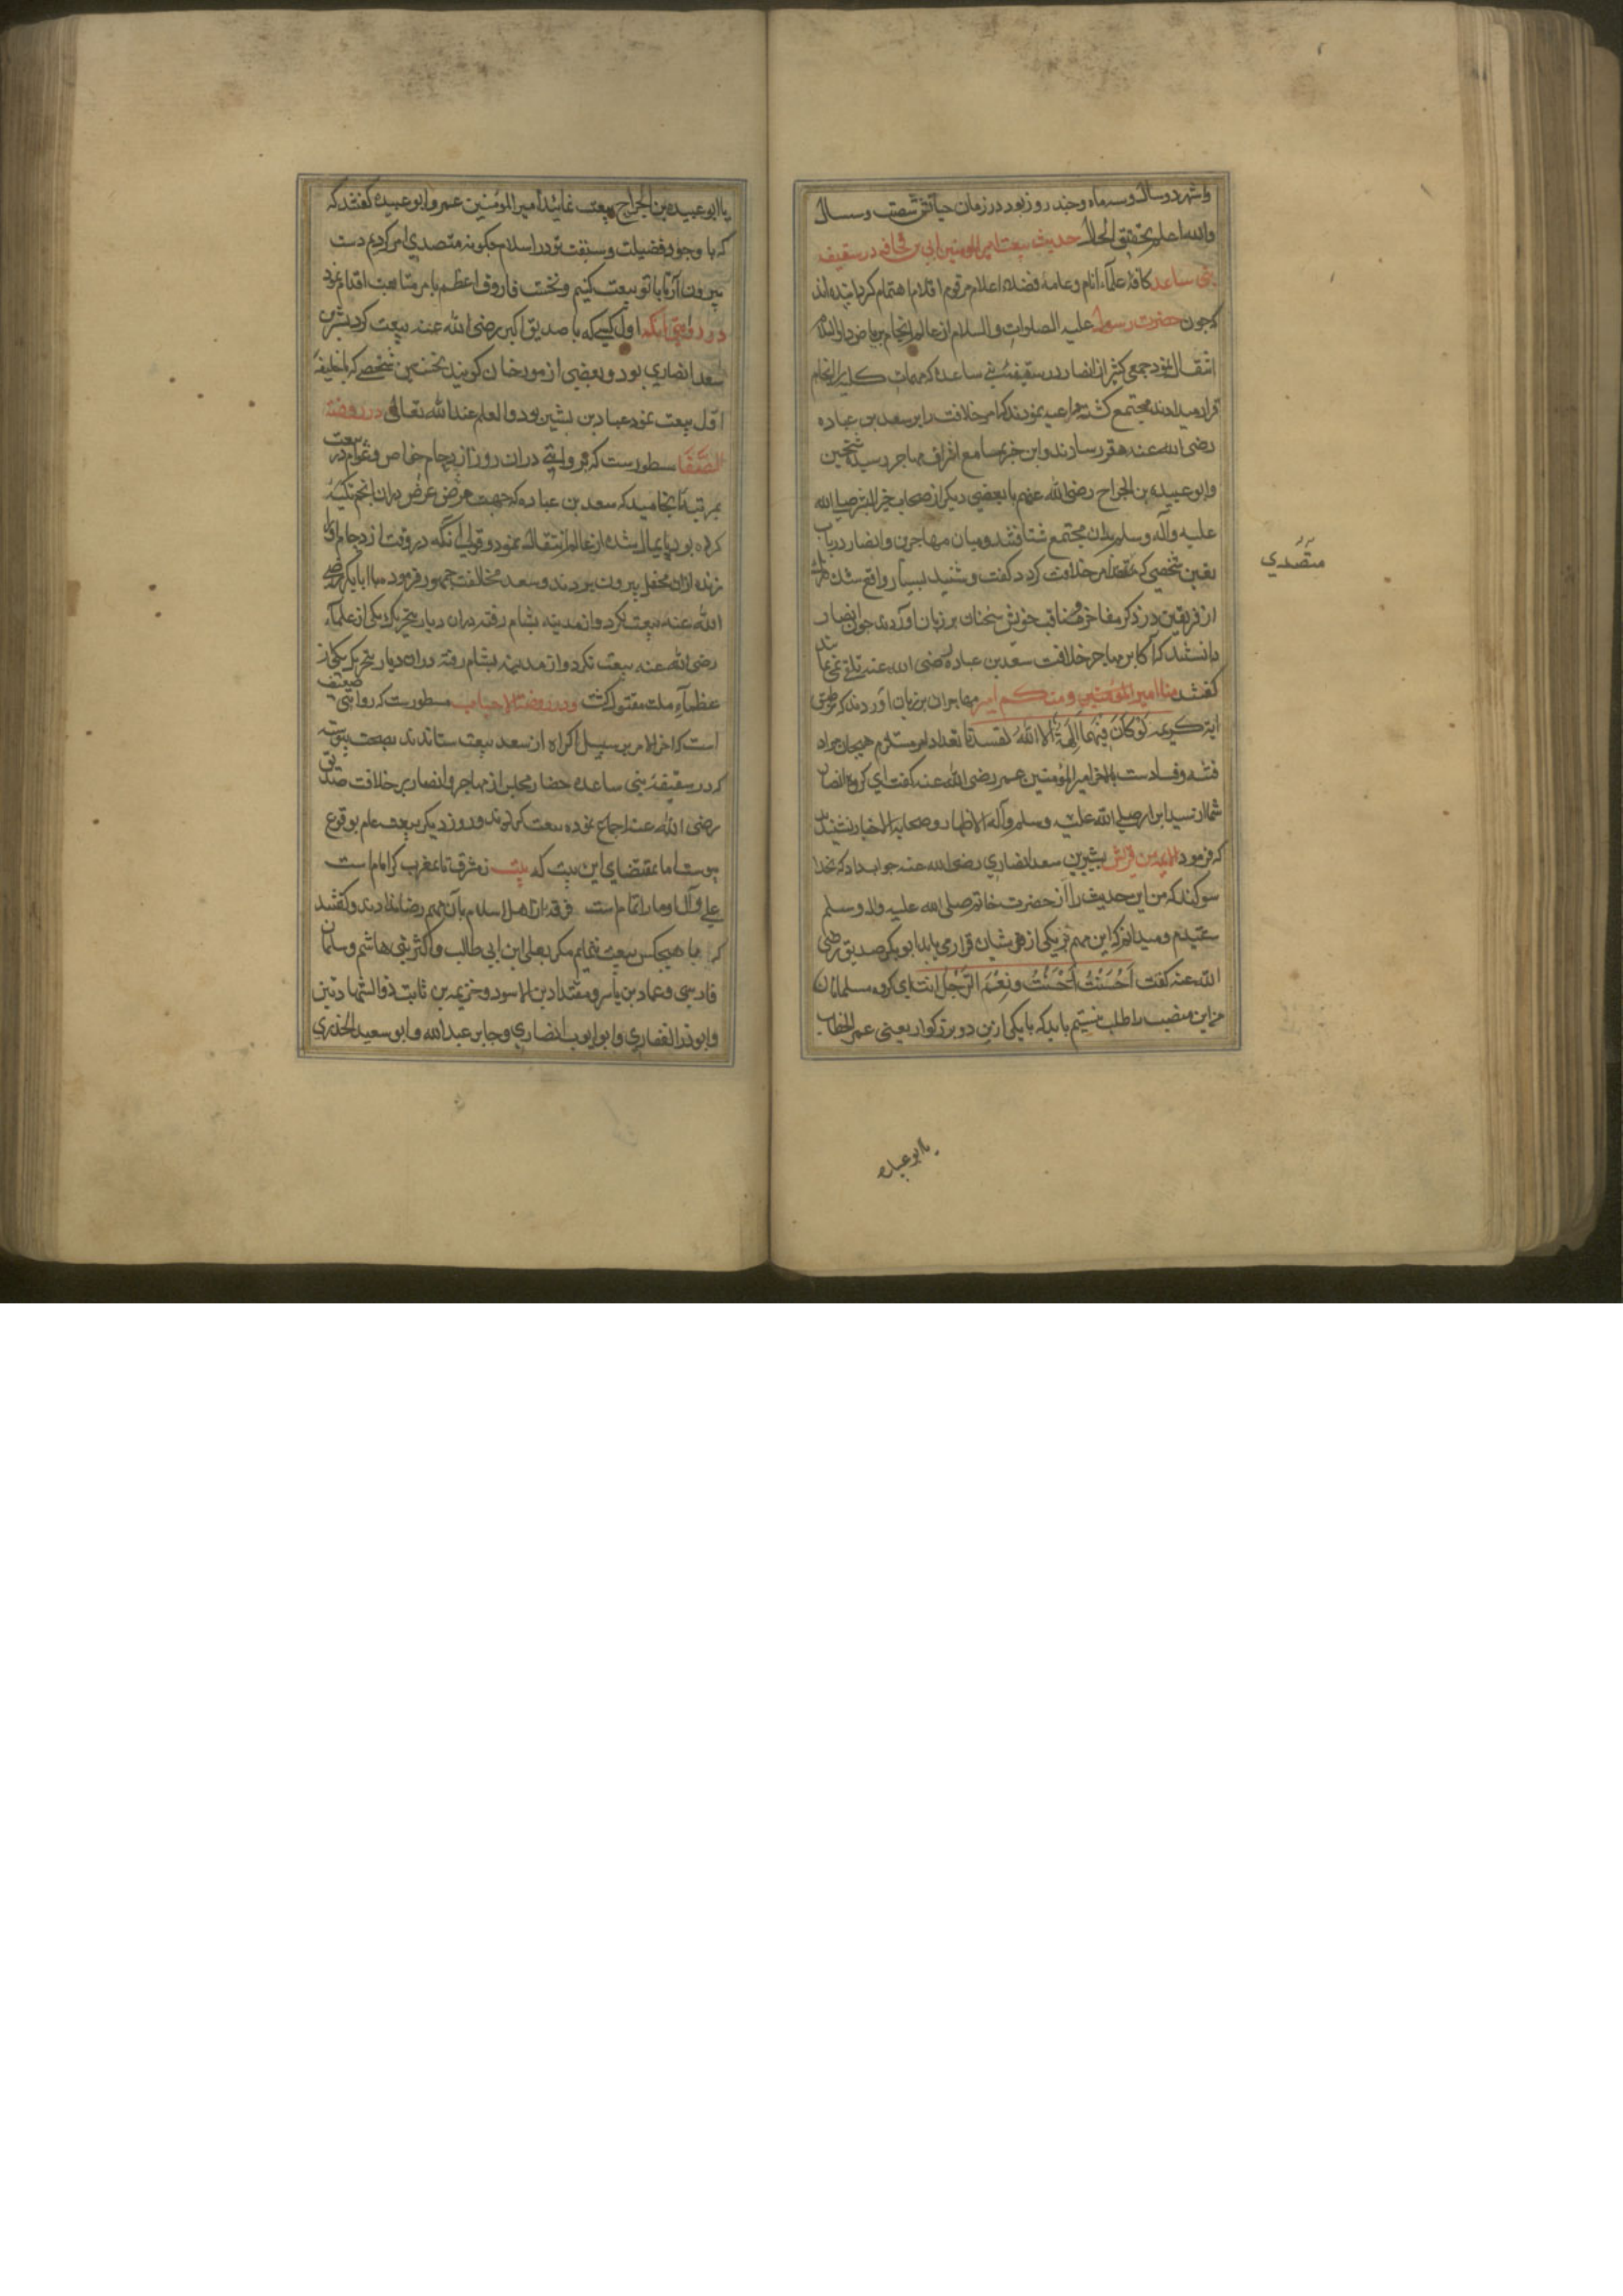 و شهر دو سال و سه ماه و چند روز بود در زمان حیاتش شصت و سه سال
والله اعلم بتحقیق الحال حدیث بیعت امیر المومنین ابی بن قحافه در سقیفه
بنی ساعده کافهٔ علماء انام و عامهٔ فضلاء اعلام مرقوم اقلام اهتمام کردانیده اند
که جون حضرت رسول علیه الصلوات والسلام از عالم انجام بریاض دار السلام
انتقال نمود جمعی کثیر از انصار در سقیفهٔ بنی ساعده که مهمات کلی را انجام
قرار میدادند مجتمع کشته داعیه نمودند که امر خلافت را بر سعد بن عباده
رضی الله عنه مقرر سازند و این خبر بمسامع اشراف مهاجر رسیده شیخین
وابو عبیده بن الجراح رضی الله عنهم با بعضی دیکر از صحاب خیر البشر صلی الله
علیه وآله وسلم بدان مجتمع شتافتند و میان مهاجرین و انصار در باب
تعین شخصی که متصدی امر خلافت کردد کفت و شنید بسیار واقع شد
از فریقین در ذکر مفاخر و مناقب خویش سخنان بر زبان آوردند جون انصار
دانستند که اکابر مهاجر خلافت سعد بن عباده رضی الله عنه تلقی نمی نمایند
کفتند منا امیر المومنین و منکم امیر مهاجران بر زبان آوردند که بر طبق
آیهٔ کریمه لَوْ كَانَ فِيهِمَا آلِهَةٌ إِلَّا اللَّهُ لَفَسَدَتَا تعداد امر مستلزم هیجان مواد
فتنه و فساد ست بالاخر امیر المؤمنین عمر رضی الله عنه کفت ای کروه انصار
شما از سید ابرار صلی الله علیه وسلم وآله الاطهار و صحابه الاخیار نشنیدید
که فرمود الایمه من قریش بشیر بن سعد انصاری رضی الله عنه جواب داد که بخدا
سوکند که من این حدیث را از حضرت خاتم صلی الله علیه واله وسلم
شنیدم و میدانم که این مهم بر یکی از قریشیان قرار می یابد ابو بکر صدیق رضی
الله عنه کفت اَحْسَنْتَ اَحْسَنْتَ وَ نِعْمَ الرَّجُلُ اَنْتَ ای کروه مسلمانان
من این منصب را طلب نیستم باید که با یکی از این دو بزرکوار یعنی عمر الخطاب
متصدي
یا ابو عبیده
یا ابو عبیده بن الجراح بیعت نمائید امیر المومنین عمر و ابو عبیده کفتند که
که با وجود فضیلت و سبقت تو در اسلام جکونه متصدی امر کردیم دست
بیرون آر تا با تو بیعت کنیم و نخست فاروق اعظم بامر متابعت اقدام نمود
در روایتی آنکه اول کسی که با صدیق اکبر رضی الله عنه بیعت کرد بشر بن
سعد انصاری بود و بعضی از مورخان کویند نخستین شخصی که با خلیفهٔ
اول بیعت نمود عباد بن بشیر بود والعلم عند الله تعالی در روضة
الصَّفَا مسطورست که بر وایتی در آن روز ازدحام خواص و عوام در بیعت
بمرتبهٔ انجامید که سعد بن عباده که جهت مرض عرض بدان انجمن تکیه
کرده بود پایمال شده از عالم انتقال نمود و قولی آنکه در وقت ازدحام او را
زنده از آن محفل بیرون بردند و سعد مخالفت جمهور فرمود با ابابکر رضی
الله عنه بیعت نکرد و از مدینه بشام رفته در آن دیار بتحریک یکی از علماء
رضی الله عنه بیعت نکرد و از مدینه بشام رفته در آن دیار بتحریک یکی از
عظماء ملت مقتول کشت و در روضة الاحباب مسطورست که روایتی ضعیف
است که آخر الامر بر سبیل اکراه از سعد بیعت ستاندند بصحت پیوسته
که در سقیفهٔ بنی ساعده حضار مجلس از مهاجر و انصار بر خلافت صدیق
رضی الله عنه اجماع نموده بیعت کردند و روز دیکر بیعت عام بوقوع
پیوست اما بمقتضای این بیت که بیت ز مشرق تا بمغرب کر امام است
علی و آل او ما را تمام است فرقهٔ از اهل اسلام بآن مهم رضا ندادند و کفتند
که ما با هیچکس بیعت ننمایم مکر بعلی ابن ابی طالب و اکثر بنی هاشم و سلمان
فارسی و عمار بن یاسر و مقداد بن الاسود و خزیمه بن ثابت ذو الشهادتین
و ابوذر الغفاری و ابو ایوب انصاری و جابر عبد الله و ابو سعید الخدری